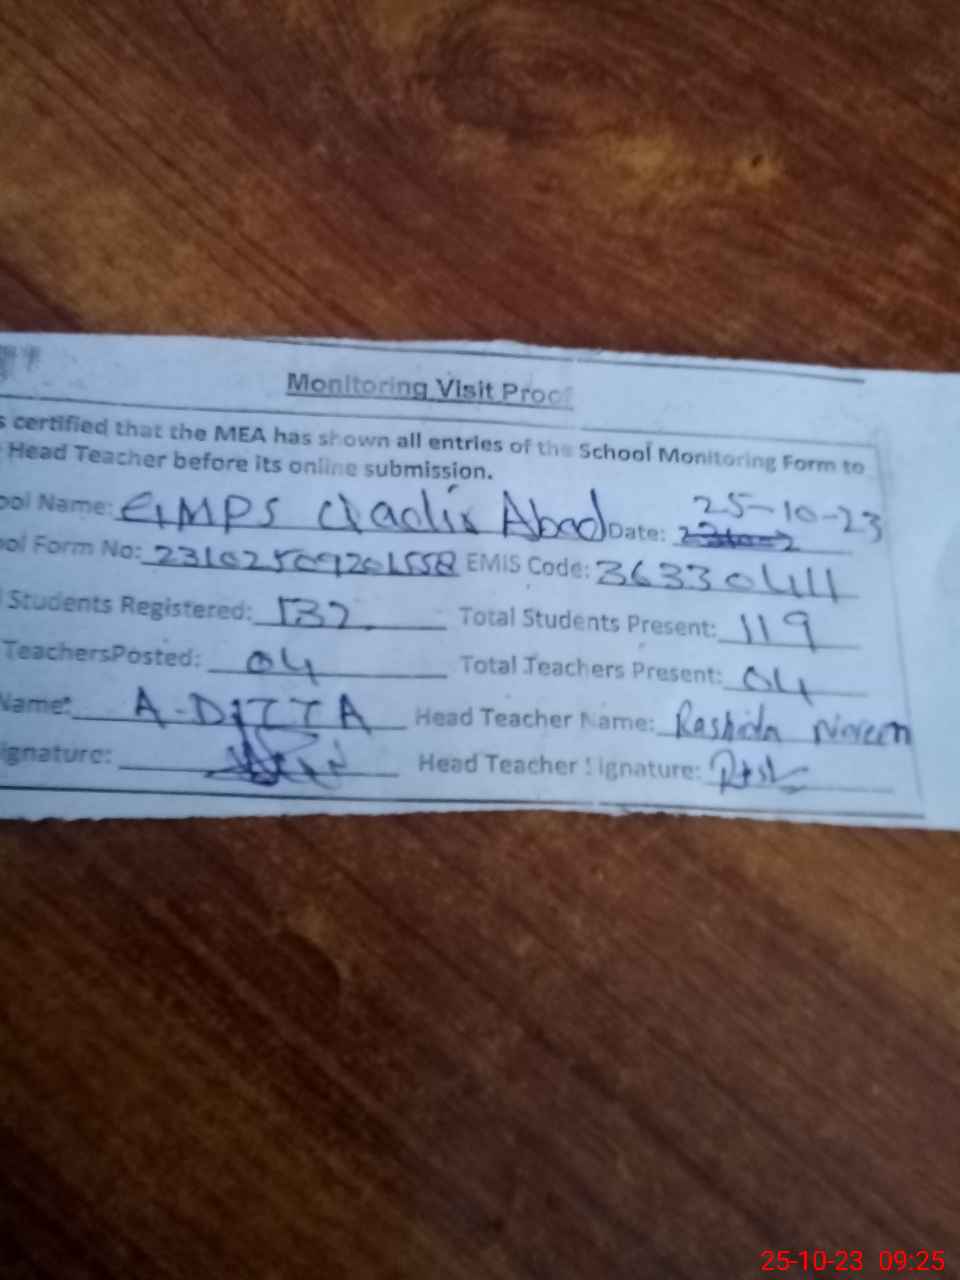 Monitoring Visit Proof
s certified that the MEA has shown all entries of the School Monitoring Form to
Head Teacher before its online submission.
ool Name: GMPS Abad Date: 25-10-23
ool Form No: 23102509201558 EMIS Code: 36330414
Students Registered: 132 Total Students Present: 119
TeachersPosted: 04 Total Teachers Present: 04
Name: A-DITTA Head Teacher Name: Rashida
ignature: Head Teacher Signature:
25-10-23 09:25